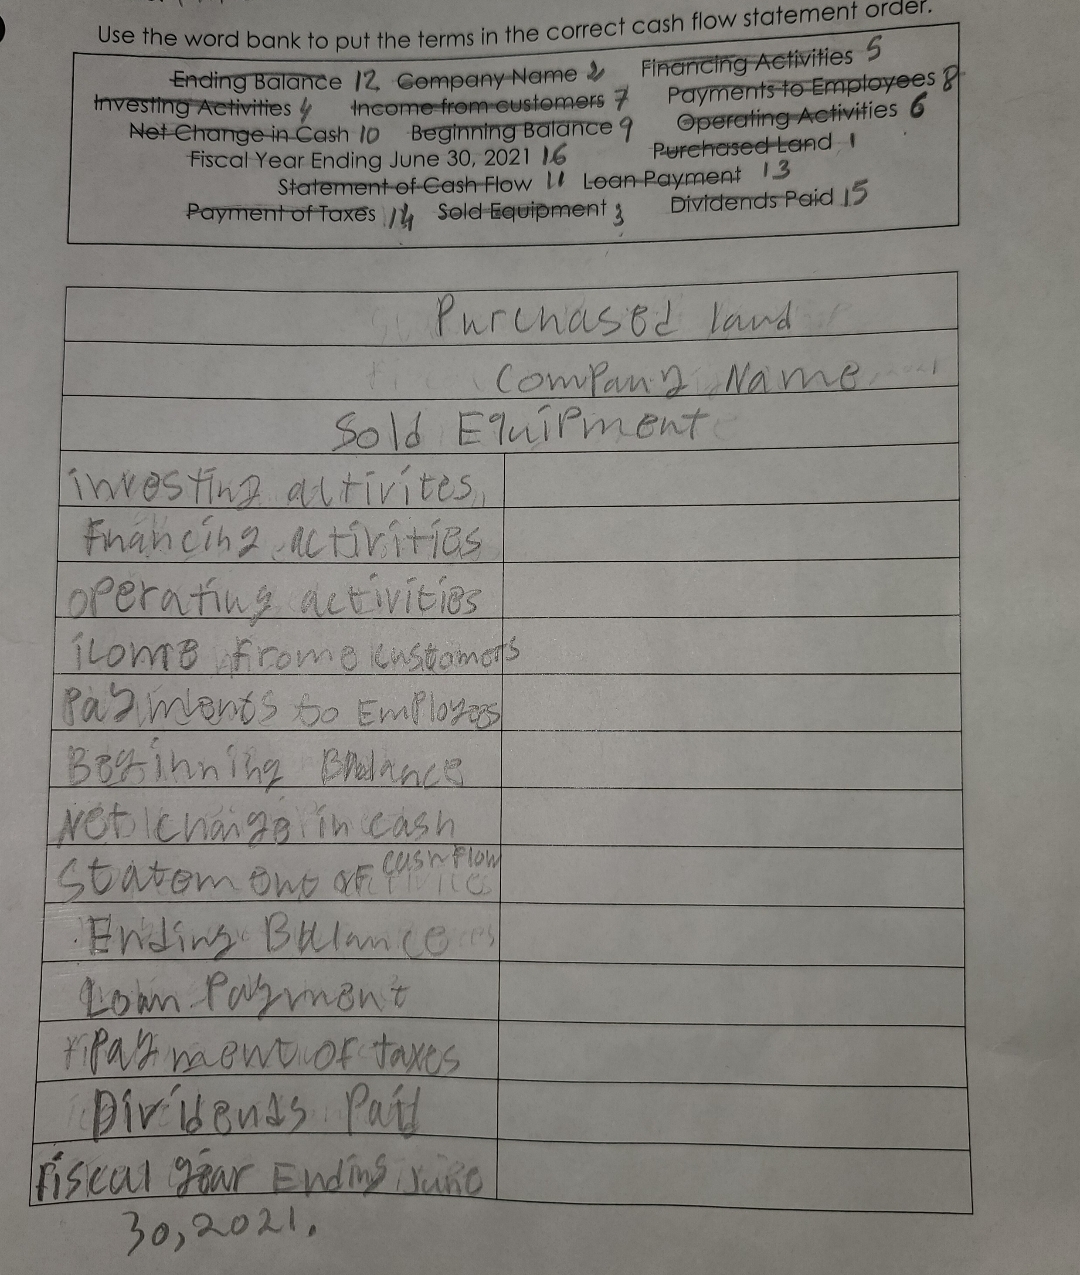 Use the word bank to put the terms in the correct cash flow statement order.
Ending Balance 12 Company Name 2 Financing Activities 5
Investing Activities 4 Income from customers 7 Payments to Employees 8
Net Change in Cash 10 Beginning Balance 9 Operating Activities 6
Fiscal Year Ending June 30, 2021 16 Purchased Land 1
Statement of Cash Flow 11 Loan Payment 13
Payment of Taxes 14 Sold Equipment 3 Dividends Paid 15
Purchased land
Company Name
Sold Equipment
investing activites
Financing activities
operating activities
icome frome customers
Payments to Employees
Beginning Balance
Net change in cash
Statement of cash flow
Ending Balance
Loan Payment
Payment of taxes
Dividends Paid
Fiscal year Ending June
30,2021.